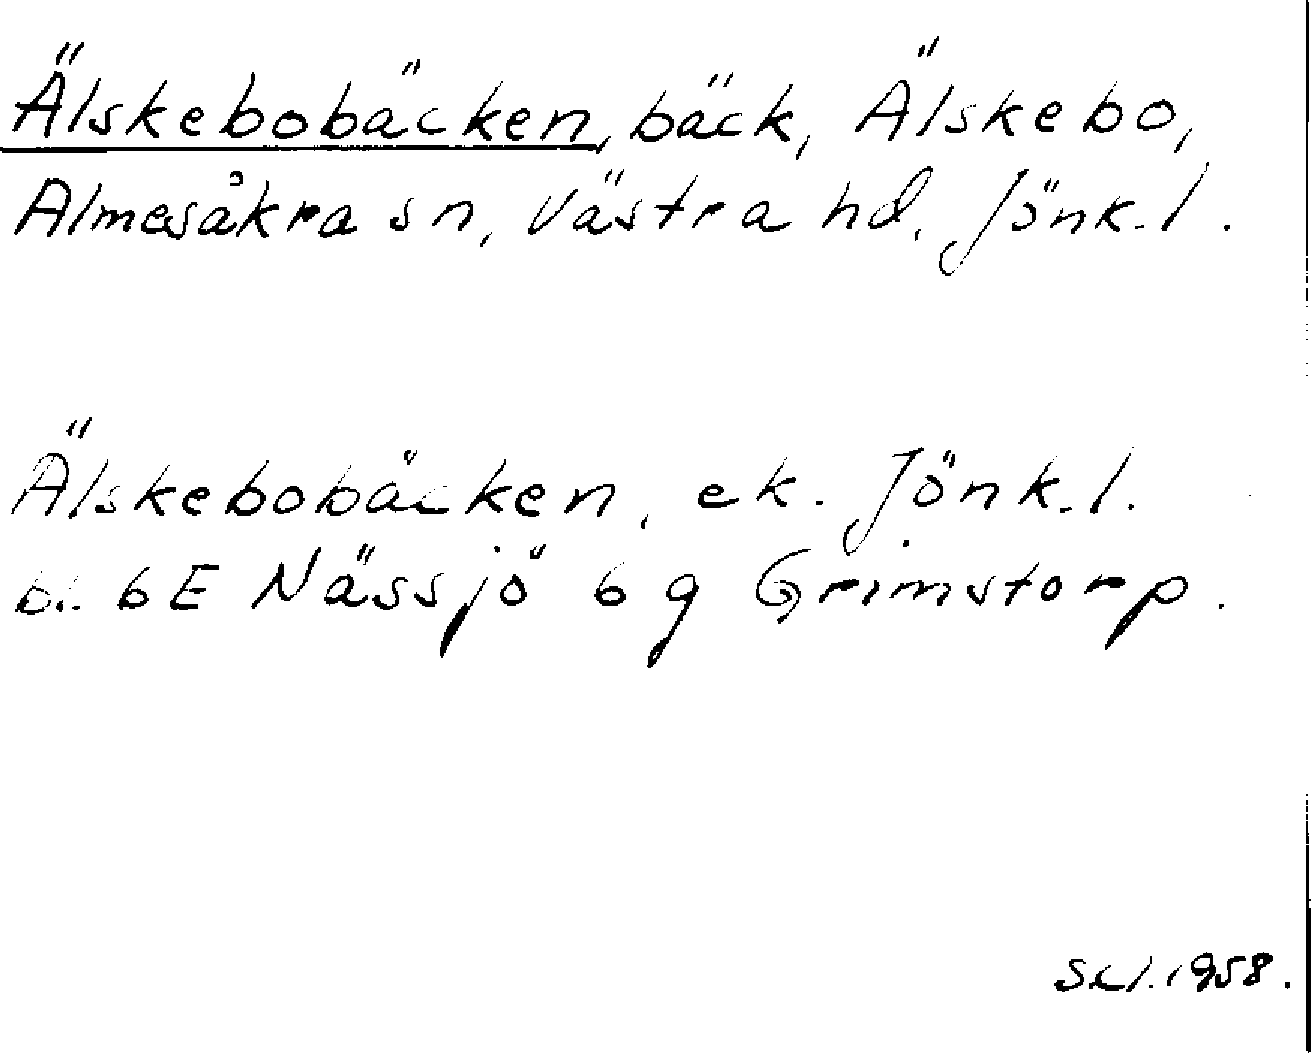 Älskebobäcken, bäck, Älskebo,
Almesåkra sn, Västra hd, Jönk.l.
Älskebobäcken, ek. Jönk.l.
bl. 6E Nässjö 6 g Grimstorp.
1958.